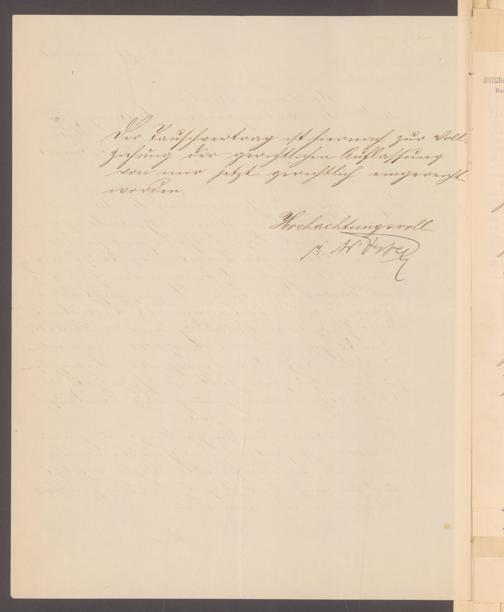 Der Tauschvertrag ist hiernach zur Voll-
ziehung der gerichtlichen Auflassung
von mir jetzt gerichtlich eingereicht
worden.
Hochachtungsvoll